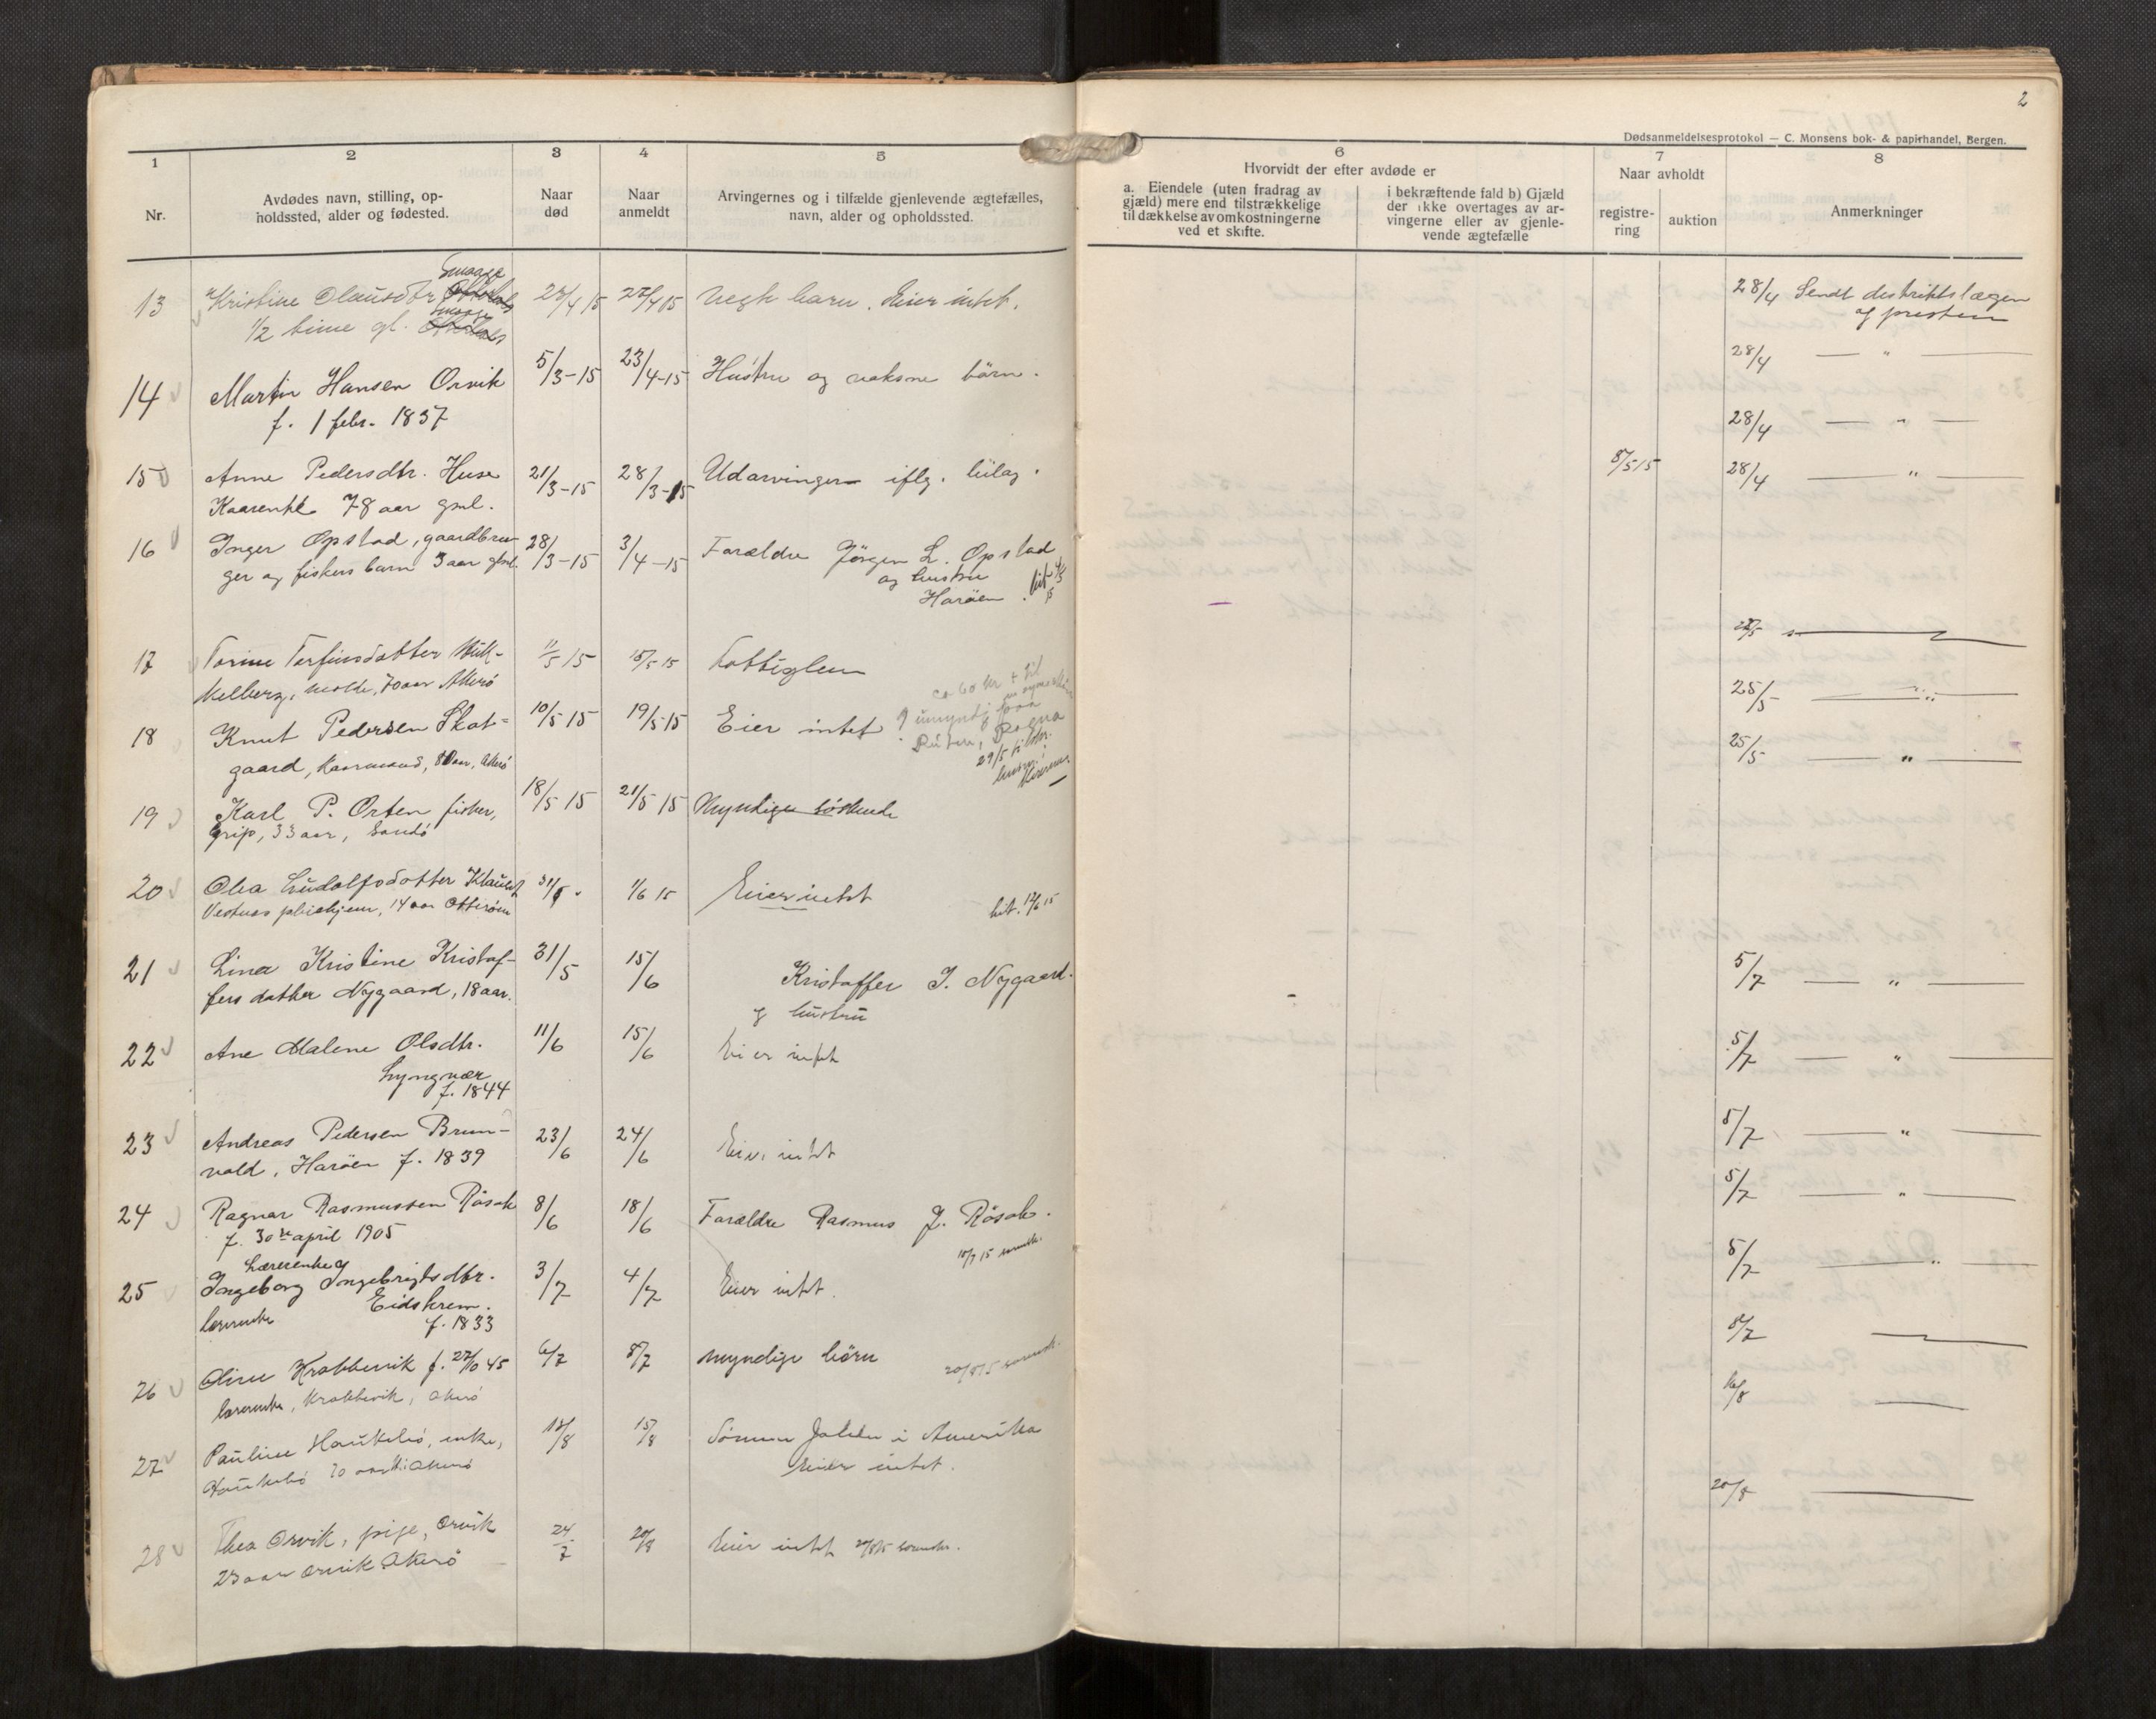 2
Dødsanmeldelsesprotokol — C. Monsens bok- & papirhandel, Bergen.
1
Nr.
2
Avdødes navn, stilling, op-
holdssted, alder og fødested.
3
Naar
død
4
Naar
anmeldt
5
Arvingernes og i tilfælde gjenlevende ægtefælles,
navn, alder og opholdssted.
6
Hvorvidt der efter avdøde er
a. Eiendele (uten fradrag av
gjæld) mere end tilstrækkelige
til dækkelse av omkostningerne
ved et skifte.
i bekræftende fald b) Gjæld
der ikke overtages av ar-
vingerne eller av gjenle-
vende ægtefælle
7
Naar avholdt
registre-
ring
auktion
8
Anmerkninger
Smaage
13 Kristine Olausdtr 27/4 15 Uegte barn. Eier intet. 28/4 Sendt distriktslægen
1/2 time gl. Smaage og presten
14 Martin Hansen Orvik 5/3-15 23/4-15 Hustru og voksne børn. 28/4 — " —
f. 1 febr. 1837
28/4 — " —
15 Anne Pedersdtr. Huse 21/3-15 28/3-15 Udarvinger iflg. bilag. 8/5 15 28/4 — " —
Kaarenke 78 aar gml.
16 Inger Opstad, gaardbru- 28/3-15 3/4-15 Forældre Jørgen L. Opstad
ger og fiskers barn 3 aar gml. og hustru
Harøen.
17 Torine Torfinsdatter 11/5 15 15/5 15
Molde, 70 aar Akerø
18 Knut Pedersen Skot- 10/5 15 19/5 15 Eier intet 25/5 — " —
gaard, kaarmand, Akerø
ca 60 kr + til
Ragna
19 Karl P. Orten fisker, 18/5 15 21/5 15 Myndige søskende 25/5 — " —
Grip, 33 aar, Sandø
20 Olea Ludolfsdatter 1/6 15 Eier intet
Vestnes pleiehjem, 14 aar Otterøen
21 Lina Kristine Kristof- 31/5 15/6 Kristoffer J. Nygaard. 5/7 — " —
fers datter Nygaard, 18 aar. og hustru
22 Ane Malene Olsdtr. 11/6 15/6 Eier intet 5/7 — " —
Lyngvær
f. 1844
23 Andreas Pedersen Brun- 23/6 24/6 Eier intet 5/7 — " —
vold, Harøen f. 1839
24 Ragnar Rasmussen Røsok 8/6 18/6 Forældre Rasmus J. Røsok. 5/7 — " —
f. 30te april 1905
Lærerenke
25 Ingeborg Ingebrigtsdtr. 3/7 4/7 Eier intet. 5/7 — " —
Eidskrem.
f. 1833
26 Oline Krabbevik f. 27/10 45 6/7 8/7 myndige børn 8/7 —
Krabbevik, Akerø
27 Pauline Haukebø, enke, 15/8 Sønnen Johan i Amerika 16/8 —
Haukebø 70 aar Akerø Eier intet.
28 Thea Orvik, pige, Orvik 24/7 20/8 Eier intet 20/8 —
23 aar Orvik Akerø